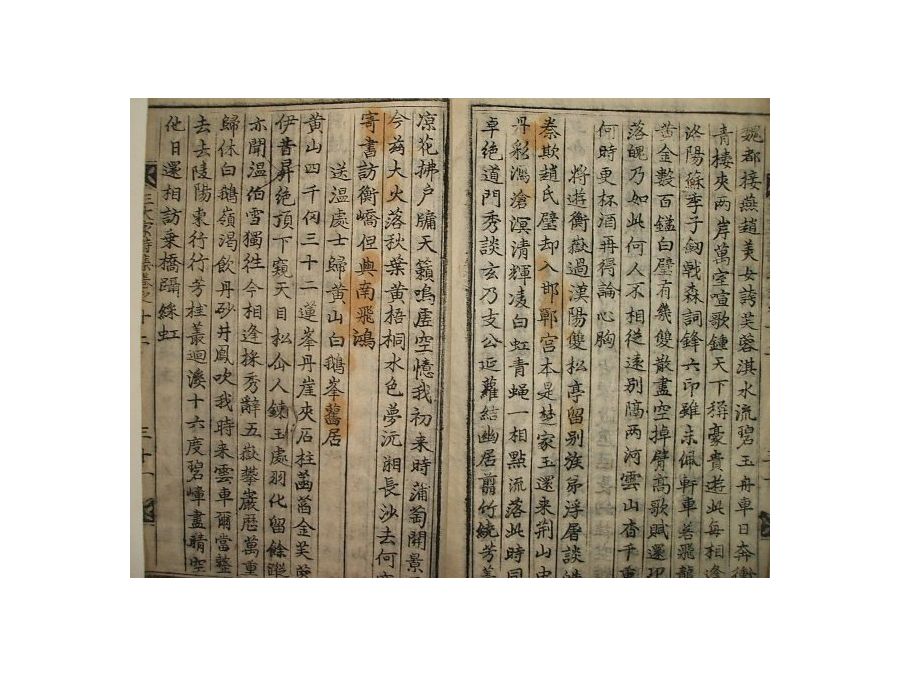 魏都接燕趙美女誇芙蓉淇水流碧玉舟車日奔衝
青樓夾兩岸萬室喧歌鍾天下稱豪貴遊此每相逢
洛陽蘇季子劒戟森詞鋒六印雖未佩軒車若飛龍
黃金數百鎰白璧有幾雙散盡空掉臂高歌賦還邛
落魄乃如此何人不相從遠別隔兩河雲山杳千重
何時更杯酒再得論心胸
將遊衡嶽過漢陽雙松亭留別族弟浮屠談皓
秦欺趙氏璧却入邯鄲宮本是楚家玉還來荊山中
丹彩瀉滄溟清輝凌白虹青蠅一相點流落此時同
卓絕道門秀談玄乃支公延蘿結幽居剪竹繞芳叢
凉花拂戶牖天籟鳴虛空憶我初來時蒲萄開景風
今茲大火落秋葉黃梧桐水色夢沅湘長沙去何窮
寄書訪衡嶠但與南飛鴻
送溫處士歸黃山白鵝峯舊居
黃山四千仞三十二蓮峯丹崖夾石柱菡萏金芙蓉
伊昔昇絕頂下窺天目松仙人鍊玉處羽化留餘蹤
亦聞溫伯雪獨往今相逢採秀辭五嶽攀巖歷萬重
歸休白鵝嶺渴飲丹砂井鳳吹我時來雲車爾當整
去去陵陽東行行芳桂叢迴溪十六度碧嶂盡晴空
他日還相訪乘橋躡綵虹